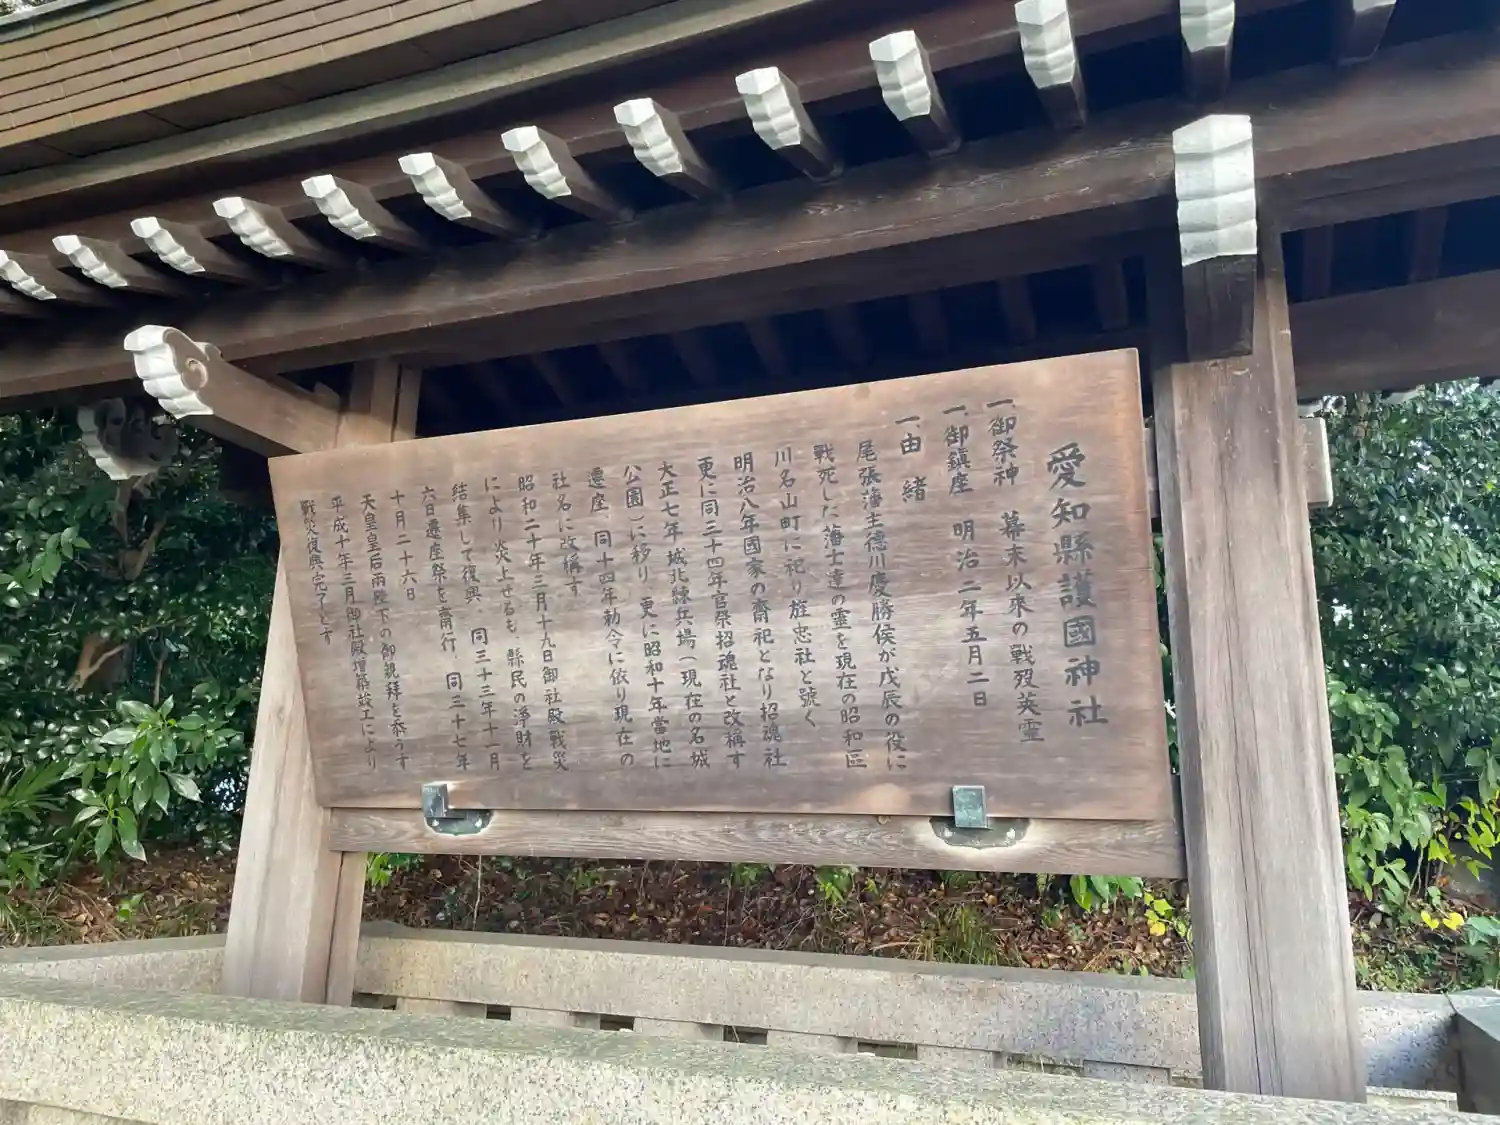 愛知縣護國神社
一、御祭神　幕末以来の戦歿英霊
一、御鎮座　明治二年五月二日
一、由緒
尾張藩主德川慶勝侯が戊辰の役に
戰死した藩士達の霊を現在の昭和區
川名山町に祀り旌忠社と號く
明治八年國家の齋祀となり招魂社
更に同三十四年官祭招魂社と改稱す
大正七年城北練兵場（現在の名城
公園）に移り、更に昭和十年當地に
遷座、同十四年勅令に依り現在の
社名に改稱す
昭和二十年三月十九日御社殿戰災
により炎上せるも、縣民の淨財を
結集して復興、同三十三年十一月
六日遷座祭を齋行、同三十七年
十月二十六日
天皇皇后兩陛下の御親拝を忝うす
平成十年三月御社殿増築竣工により
戰災復興完了とす